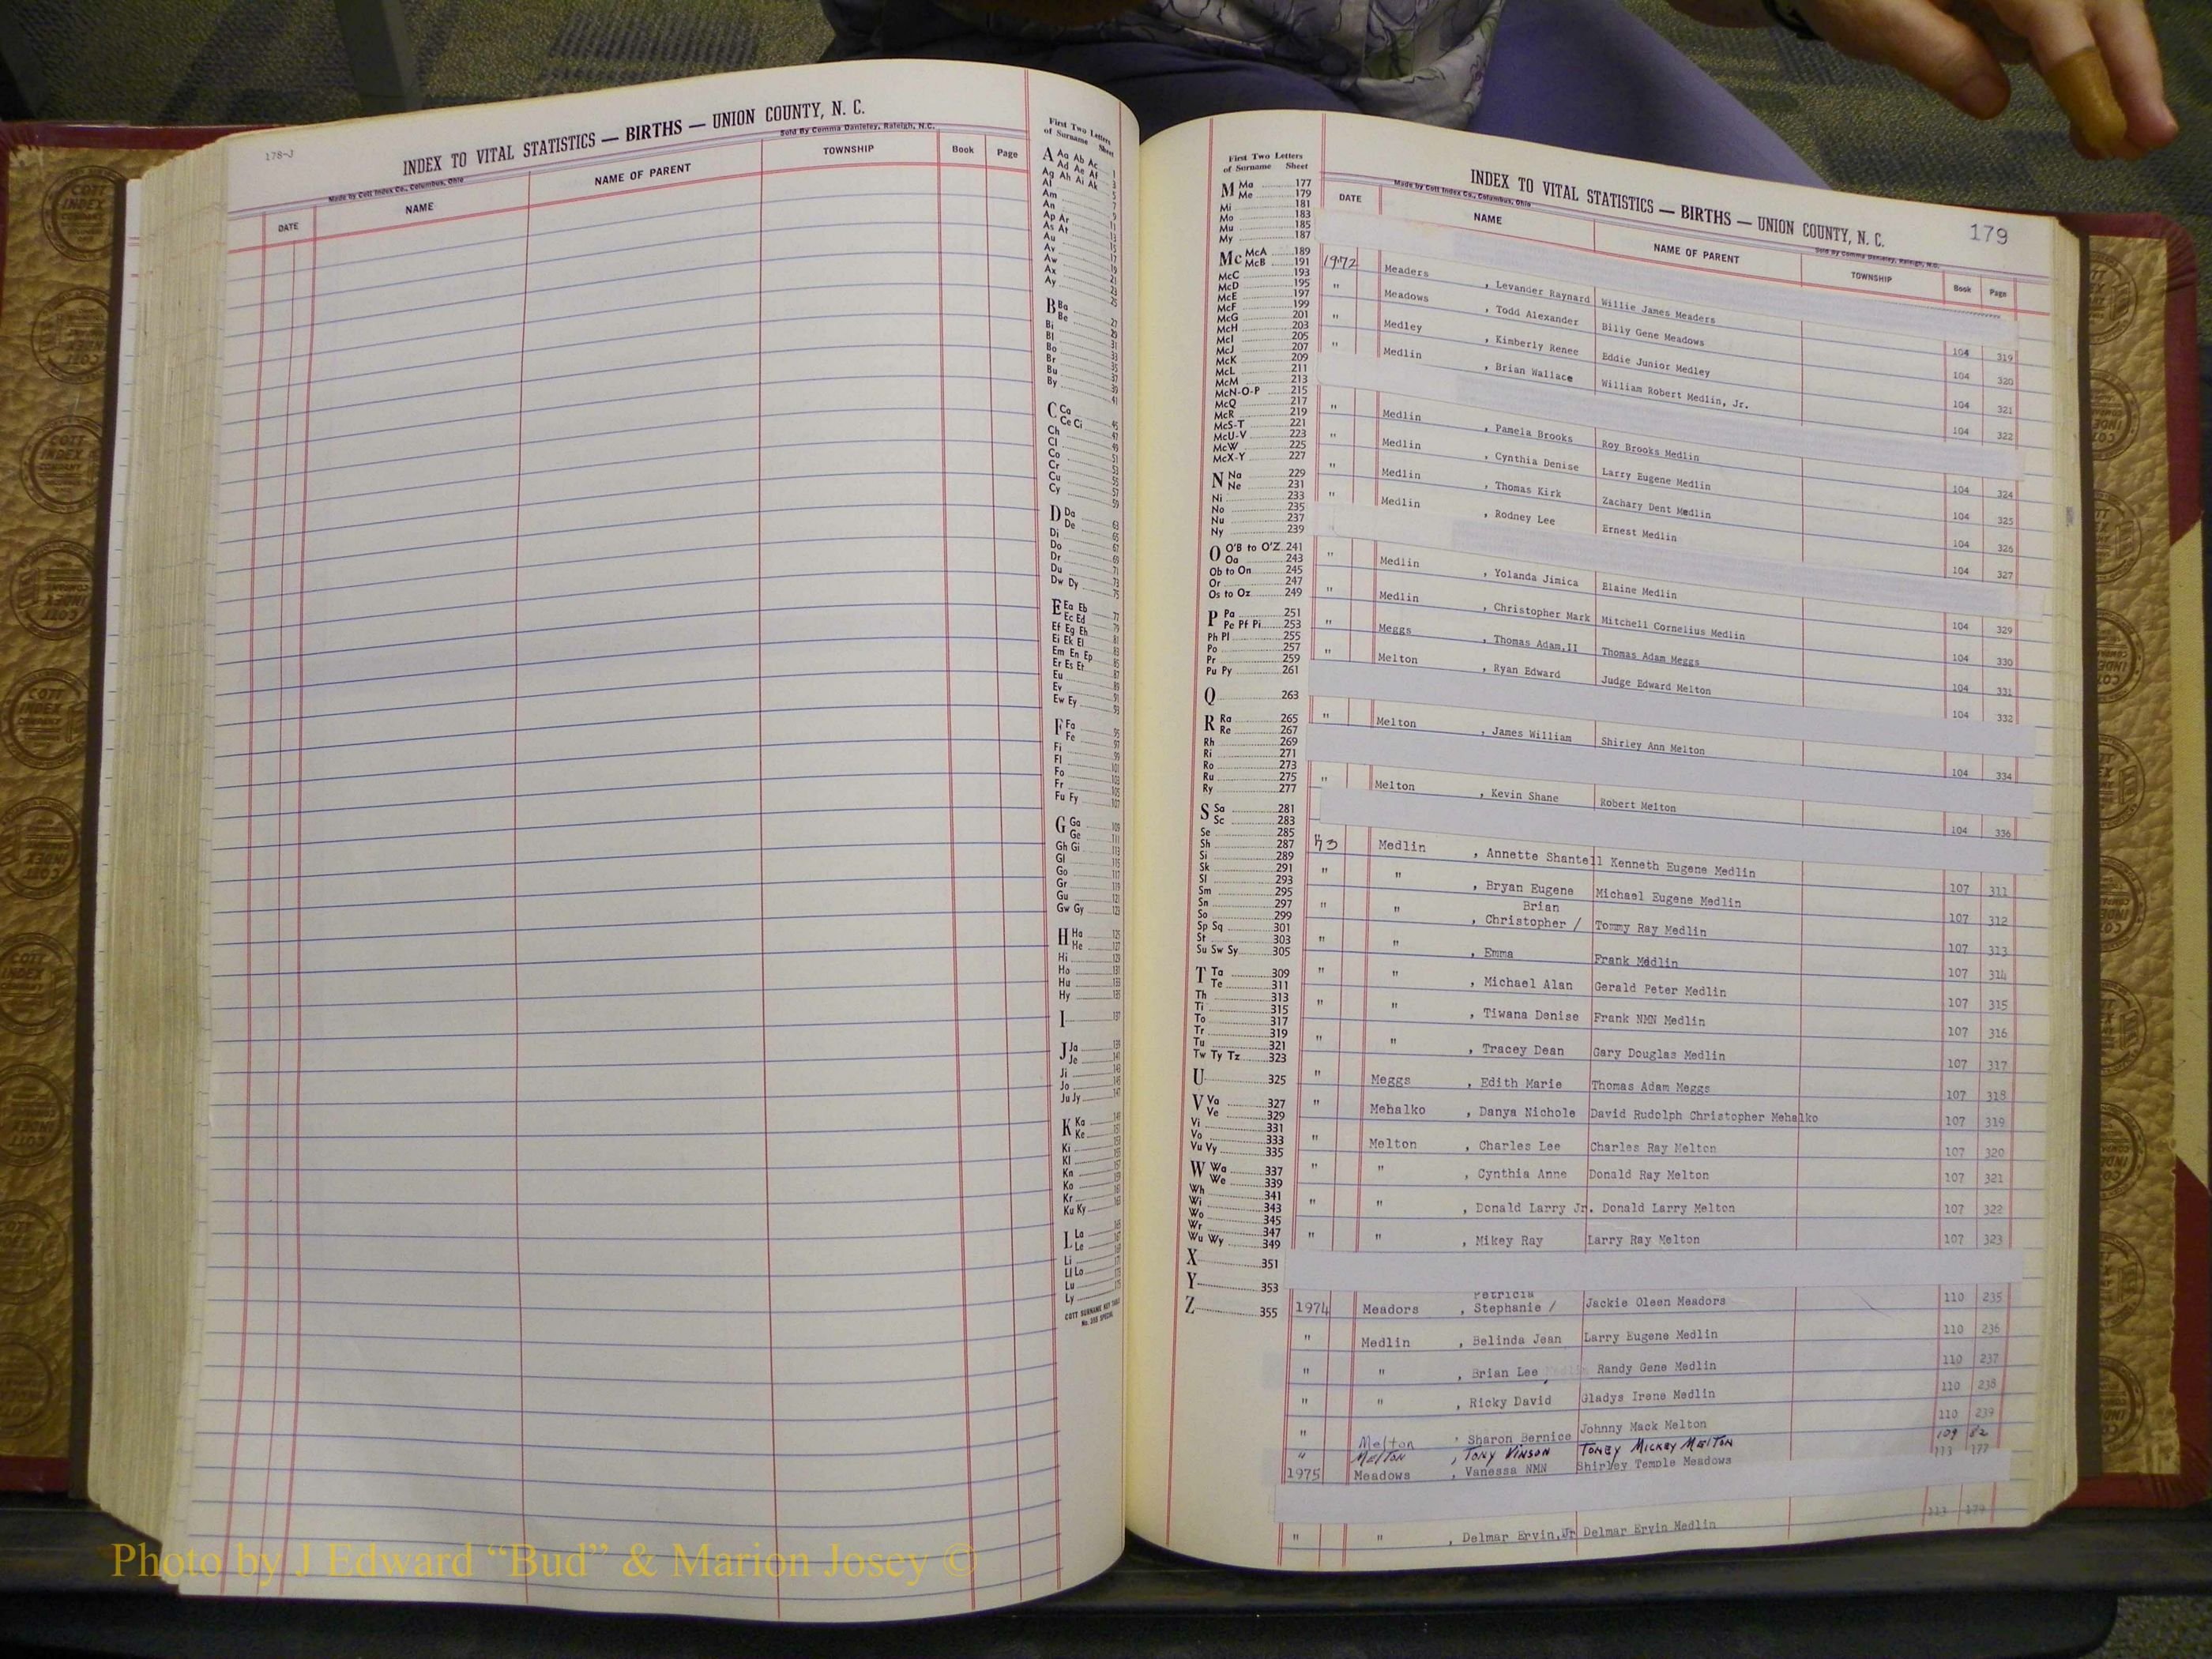 178-J
INDEX TO VITAL STATISTICS — BIRTHS — UNION COUNTY, N. C.
Made by Cott Index Co., Columbus, Ohio
Sold By Comma Danieley, Raleigh, N.C.
DATE NAME NAME OF PARENT TOWNSHIP Book Page
First Two Letters
of Surname Sheet
A Aa Ab Ac 1
Ad Ae Af 3
Ag Ah Ai Ak 5
Al 7
Am 9
An
Ap Ar
As At
Au
Av
Aw
Ax
Ay
B Ba
Be
Bi
Bl
Bo
Br
Bu
By
C Ca
Ce Ci
Ch
Cl
Co
Cr
Cu
Cy
D Da
De
Di
Do
Dr
Du
Dw Dy
E Ea Eb
Ec Ed
Ef Eg Eh
Ei Ek El
Em En Ep
Er Es Et
Eu
Ev
Ew Ey
F Fa
Fe
Fi
Fl
Fo
Fr
Fu Fy
G Ga
Ge
Gh Gi
Gl
Go
Gr
Gu
Gw Gy
H Ha
He
Hi
Ho
Hu
Hy
I
J Ja
Je
Ji
Jo
Ju Jy
K Ka
Ke
Ki
Kl
Kn
Ko
Kr
Ku Ky
L La
Le
Li
Ll Lo
Lu
Ly
COTT SURNAME KEY TABLE
No. 350 SPECIAL
First Two Letters
of Surname Sheet
M Ma 177
Me 179
Mi 181
Mo 183
Mu 185
My 187
Mc McA 189
McB 191
McC 193
McD 195
McE 197
McF 199
McG 201
McH 203
McI 205
McJ 207
McK 209
McL 211
McM 213
McN-O-P 215
McQ 217
McR 219
McS-T 221
McU-V 223
McW 225
McX-Y 227
N Na 229
Ne 231
Ni 233
No 235
Nu 237
Ny 239
O O'B to O'Z 241
Oa 243
Ob to On 245
Or 247
Os to Oz 249
P Pa 251
Pe Pf Pi 253
Ph Pl 255
Po 257
Pr 259
Pu Py 261
Q 263
R Ra 265
Re 267
Rh 269
Ri 271
Ro 273
Ru 275
Ry 277
S Sa 281
Sc 283
Se 285
Sh 287
Si 289
Sk 291
Sl 293
Sm 295
Sn 297
So 299
Sp Sq 301
St 303
Su Sw Sy 305
T Ta 309
Te 311
Th 313
Ti 315
To 317
Tr 319
Tu 321
Tw Ty Tz 323
U 325
V Va 327
Ve 329
Vi 331
Vo 333
Vu Vy 335
W Wa 337
We 339
Wh 341
Wi 343
Wo 345
Wr 347
Wu Wy 349
X 351
Y 353
Z 355
INDEX TO VITAL STATISTICS — BIRTHS — UNION COUNTY, N. C. 179
Made by Cott Index Co., Columbus, Ohio
Sold By Comma Danieley, Raleigh, N.C.
DATE NAME NAME OF PARENT TOWNSHIP Book Page
1972 Meaders , Levander Raynard Willie James Meaders 104 319
" Meadows , Todd Alexander Billy Gene Meadows 104 320
" Medley , Kimberly Renee Eddie Junior Medley 104 321
" Medlin , Brian Wallace William Robert Medlin, Jr. 104 322
" Medlin , Pamela Brooks Roy Brooks Medlin 104 324
" Medlin , Cynthia Denise Larry Eugene Medlin 104 325
" Medlin , Thomas Kirk Zachary Dent Medlin 104 326
" Medlin , Rodney Lee Ernest Medlin 104 327
" Medlin , Yolanda Jimica Elaine Medlin 104 329
" Medlin , Christopher Mark Mitchell Cornelius Medlin 104 330
" Meggs , Thomas Adam,II Thomas Adam Meggs 104 331
" Melton , Ryan Edward Judge Edward Melton 104 332
" Melton , James William Shirley Ann Melton 104 334
" Melton , Kevin Shane Robert Melton 104 336
73 Medlin , Annette Shantell Kenneth Eugene Medlin 107 311
" " , Bryan Eugene Michael Eugene Medlin 107 312
Brian
" " , Christopher / Tommy Ray Medlin 107 313
" " , Emma Frank Medlin 107 314
" " , Michael Alan Gerald Peter Medlin 107 315
" " , Tiwana Denise Frank NMN Medlin 107 316
" " , Tracey Dean Gary Douglas Medlin 107 317
" Meggs , Edith Marie Thomas Adam Meggs 107 318
" Mehalko , Danya Nichole David Rudolph Christopher Mehalko 107 319
" Melton , Charles Lee Charles Ray Melton 107 320
" " , Cynthia Anne Donald Ray Melton 107 321
" " , Donald Larry Jr. Donald Larry Melton 107 322
" " , Mikey Ray Larry Ray Melton 107 323
Patricia
1974 Meadors , Stephanie / Jackie Oleen Meadors 110 235
" Medlin , Belinda Jean Larry Eugene Medlin 110 236
" " , Brian Lee Randy Gene Medlin 110 237
" " , Ricky David Gladys Irene Medlin 110 238
" Melton , Sharon Bernice Johnny Mack Melton 110 239
" MELTON , TONY VINSON TONEY MICKEY MELTON 109 82
1975 Meadows , Vanessa NMN Shirley Temple Meadows 113 177
" " , Delmar Ervin,Jr Delmar Ervin Medlin 113 179
Photo by J Edward “Bud” & Marion Josey ©